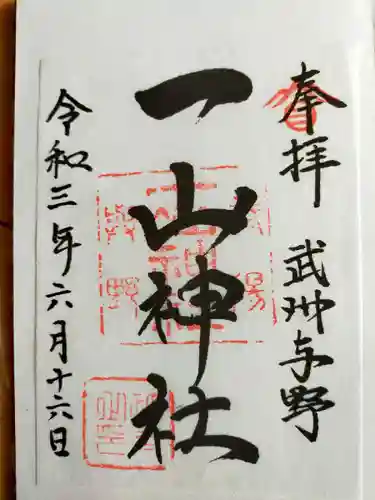 奉拝 武州与野
一山神社
令和三年六月十六日